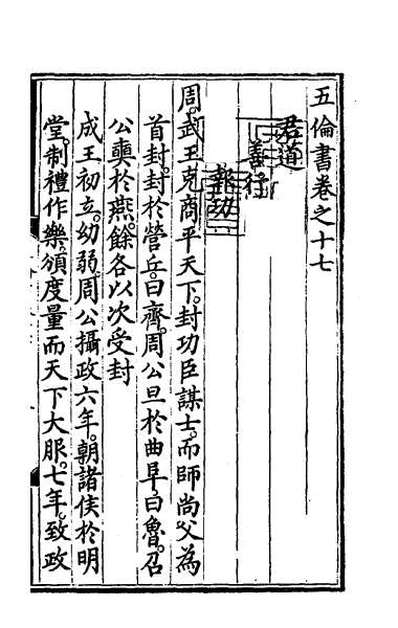 五倫書卷之十七
君道
善行
報功
周。武王克商平天下。封功臣謀士。而師尚父為
首封。封於營丘。曰齊。周公旦於曲阜。曰魯。召
公奭於燕。餘各以次受封
成王初立。幼弱。周公攝政六年。朝諸侯於明
堂。制禮作樂。頒度量而天下大服。七年。致政